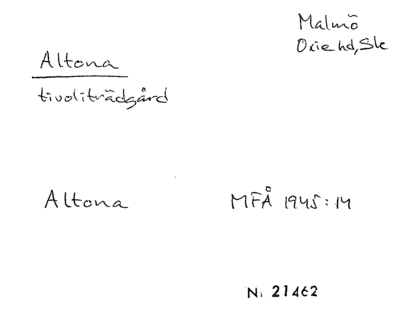 Malmö
Oxie hd, Sk
Altona
tivoliträdgård
Altona MFÅ 1945:14
N: 21462